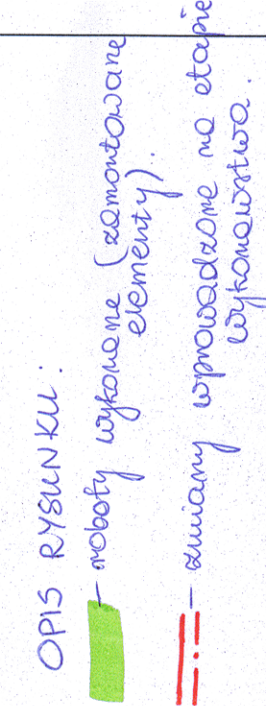 OPIS RYSUNKU:
- roboty wykonane (zamontowane
elementy).
- zmiany wprowadzone na etapie
wykonawstwa.